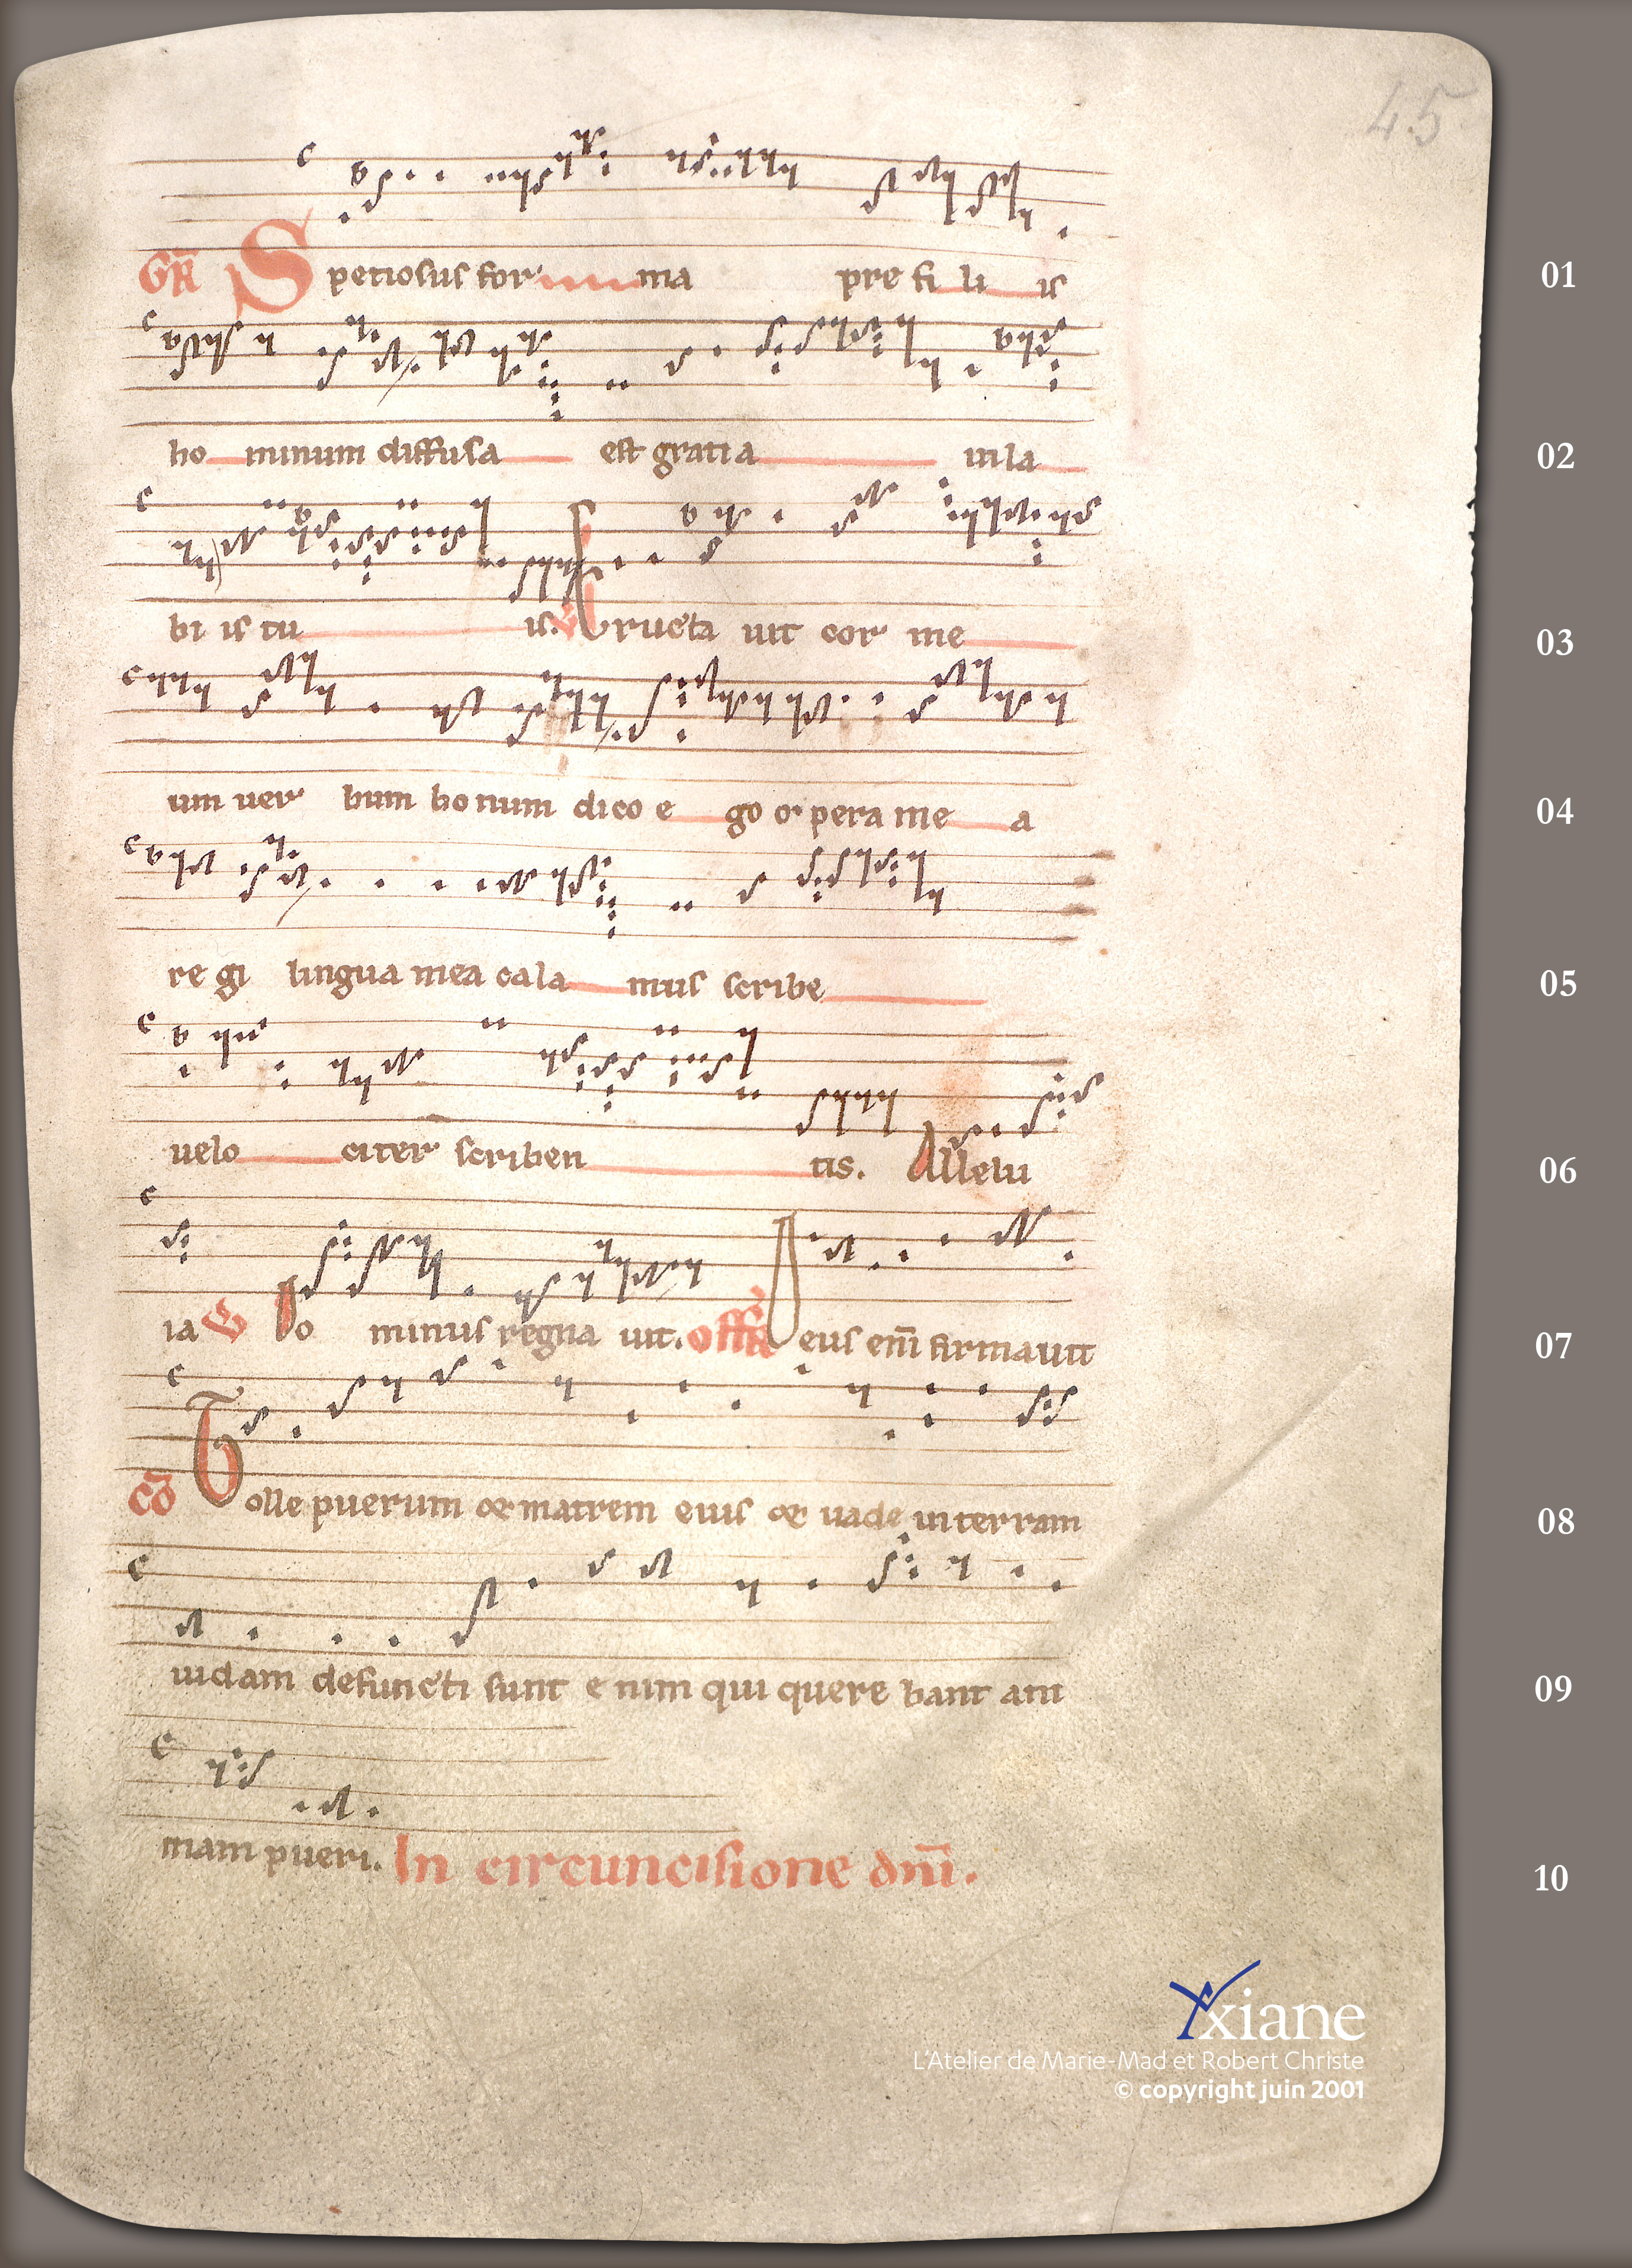 45
GR Speciosus for ma pre fi li is 01
ho minum diffusa est gratia in la 02
bi is tu is. V Eructa uit cor me 03
um uer bum bonum dico e go opera me a 04
re gi lingua mea cala mus scribe 05
uelo citer scriben tis. Allelu 06
ia V Do minus regna uit. offR eius eni͞ firmauit 07
co͞ Tolle puerum et matrem eius et uade in terram 08
iudam defuncti sunt e nim qui quere bant ani 09
mam pueri. In circuncisione dn͞i. 10
Yxiane
L'Atelier de Marie-Mad et Robert Christe
© copyright juin 2001